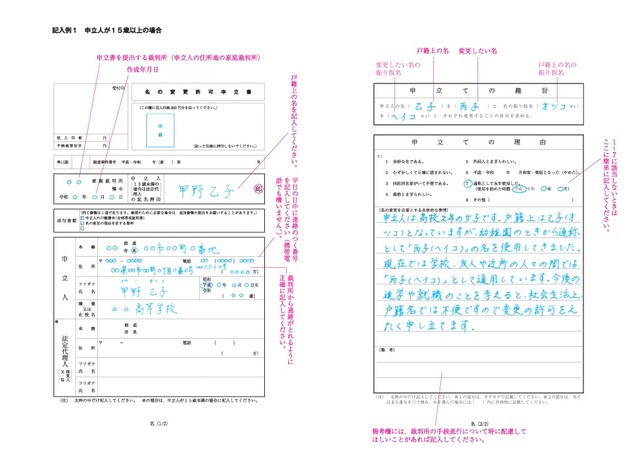 記入例1 申立人が15歳以上の場合
申立書を提出する裁判所（申立人の住所地の家庭裁判所）
作成年月日
受付印
名の変更許可申立書
（この欄に収入印紙800円分を貼ってください。）
印紙
（貼った印紙に押印しないでください。）
収入印紙 円
予納郵便切手 円
準口頭 関連事件番号 平成・令和 年（家 ）第 号
○○ 家庭裁判所
御中
令和 ○年○月○日
申立人
15歳未満の場合は法定代理人
の記名押印
甲野乙子
印
戸籍上の名を記入してください。
添付書類
申立人
本籍
都道府県
○○ ○○市○○町○番地
住所
〒○○○-○○○○ 電話 ○○(○○○○)○○○○
フリガナ
氏名
甲野乙子
職業又は在校名
○○高等学校
平日の日中に連絡のつく番号を記入してください（携帯電話でも構いません。）。
裁判所から連絡がとれるように正確に記入してください。
法定代理人
本籍
都道府県
住所
〒 － 電話 （ ）
フリガナ
氏名
フリガナ
氏名
（注） 太枠の中だけ記入してください。 ※の部分は、申立人が15歳未満の場合に記入してください。
名（1/2）
戸籍上の名 変更したい名
変更したい名の振り仮名
戸籍上の名の振り仮名
申立ての趣旨
申立人の名（乙子）を（丙子）と、名の振り仮名（オツコ ※1）
を（ヘイコ ※1）と、それぞれ変更することの許可を求める。
申立ての理由
1 奇妙な名である。
2 むずかしくて正確に読まれない。
3 同姓同名者がいて不便である。
4 異性とまぎらわしい。
5 外国人とまぎらわしい。
6 平成・令和 年 月神官・僧侶となった（やめた）。
7 通称として永年使用した。
8 その他（ ）
1～7に該当しないときはここに簡単に記入してください。
（名の変更を必要とする具体的な事情）
申立人は高校2年の女子です。戸籍上は乙子(オ
ツコ)となっていますが、幼稚園のときから通称
として「丙子(ヘイコ)」の名を使用してきました。
現在では学校、友人や近所の人々の間では
「丙子(ヘイコ)」として通用しています。今後の
進学や就職のことを考えると、社会生活上、
戸籍名では不便ですので変更の許可をえ
たく申し立てます。
（備考）
名（2/2）
備考欄には、裁判所の手続進行について特に配慮して
ほしいことがあれば記入してください。